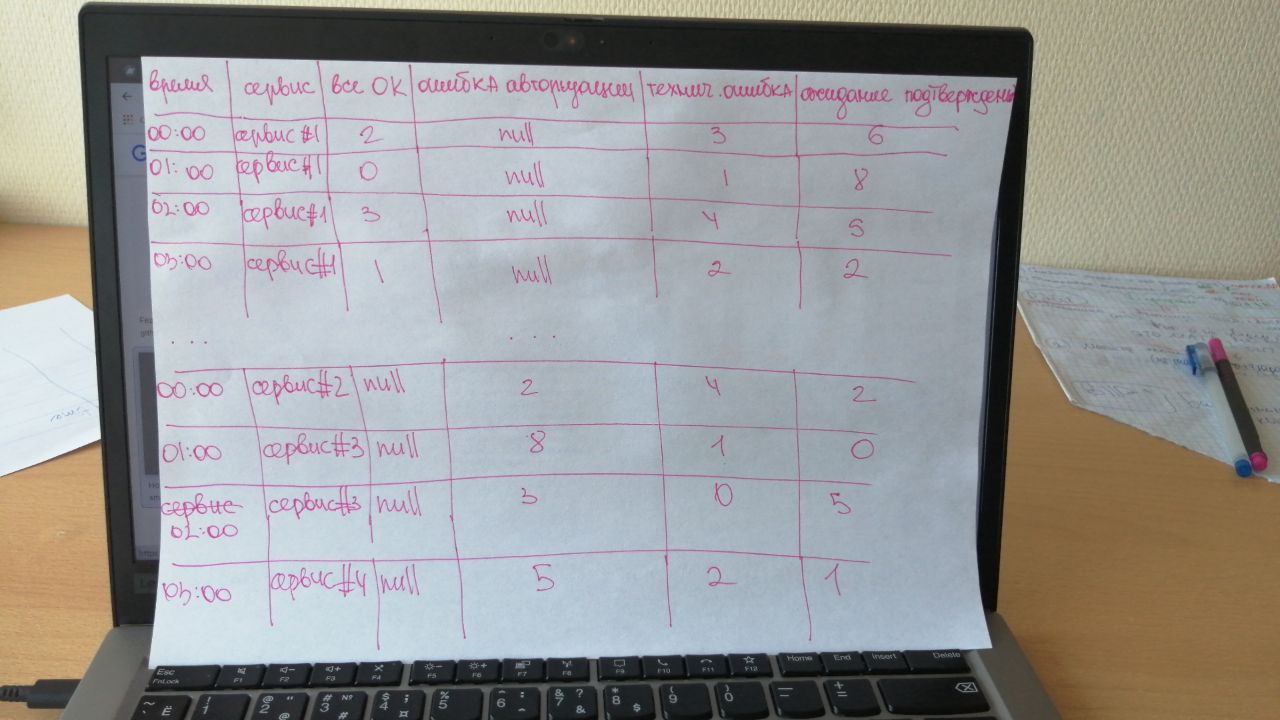 время сервис все ОК ошибка авторизации технич. ошибка ожидание подтверждень
00:00 сервис #1 2 null 3 6
01:00 сервис #1 0 null 1 8
02:00 сервис #1 3 null 4 5
03:00 сервис #1 1 null 2 2
... ...
00:00 сервис #2 null 2 4 2
01:00 сервис #3 null 8 1 0
сервис сервис #3 null 3 0 5
02:00
03:00 сервис #4 null 5 2 1
Esc F1 F2 F3 F4 F5 F6 F7 F8 F9 F10 F11 F12 Home End Insert Delete
FnLock